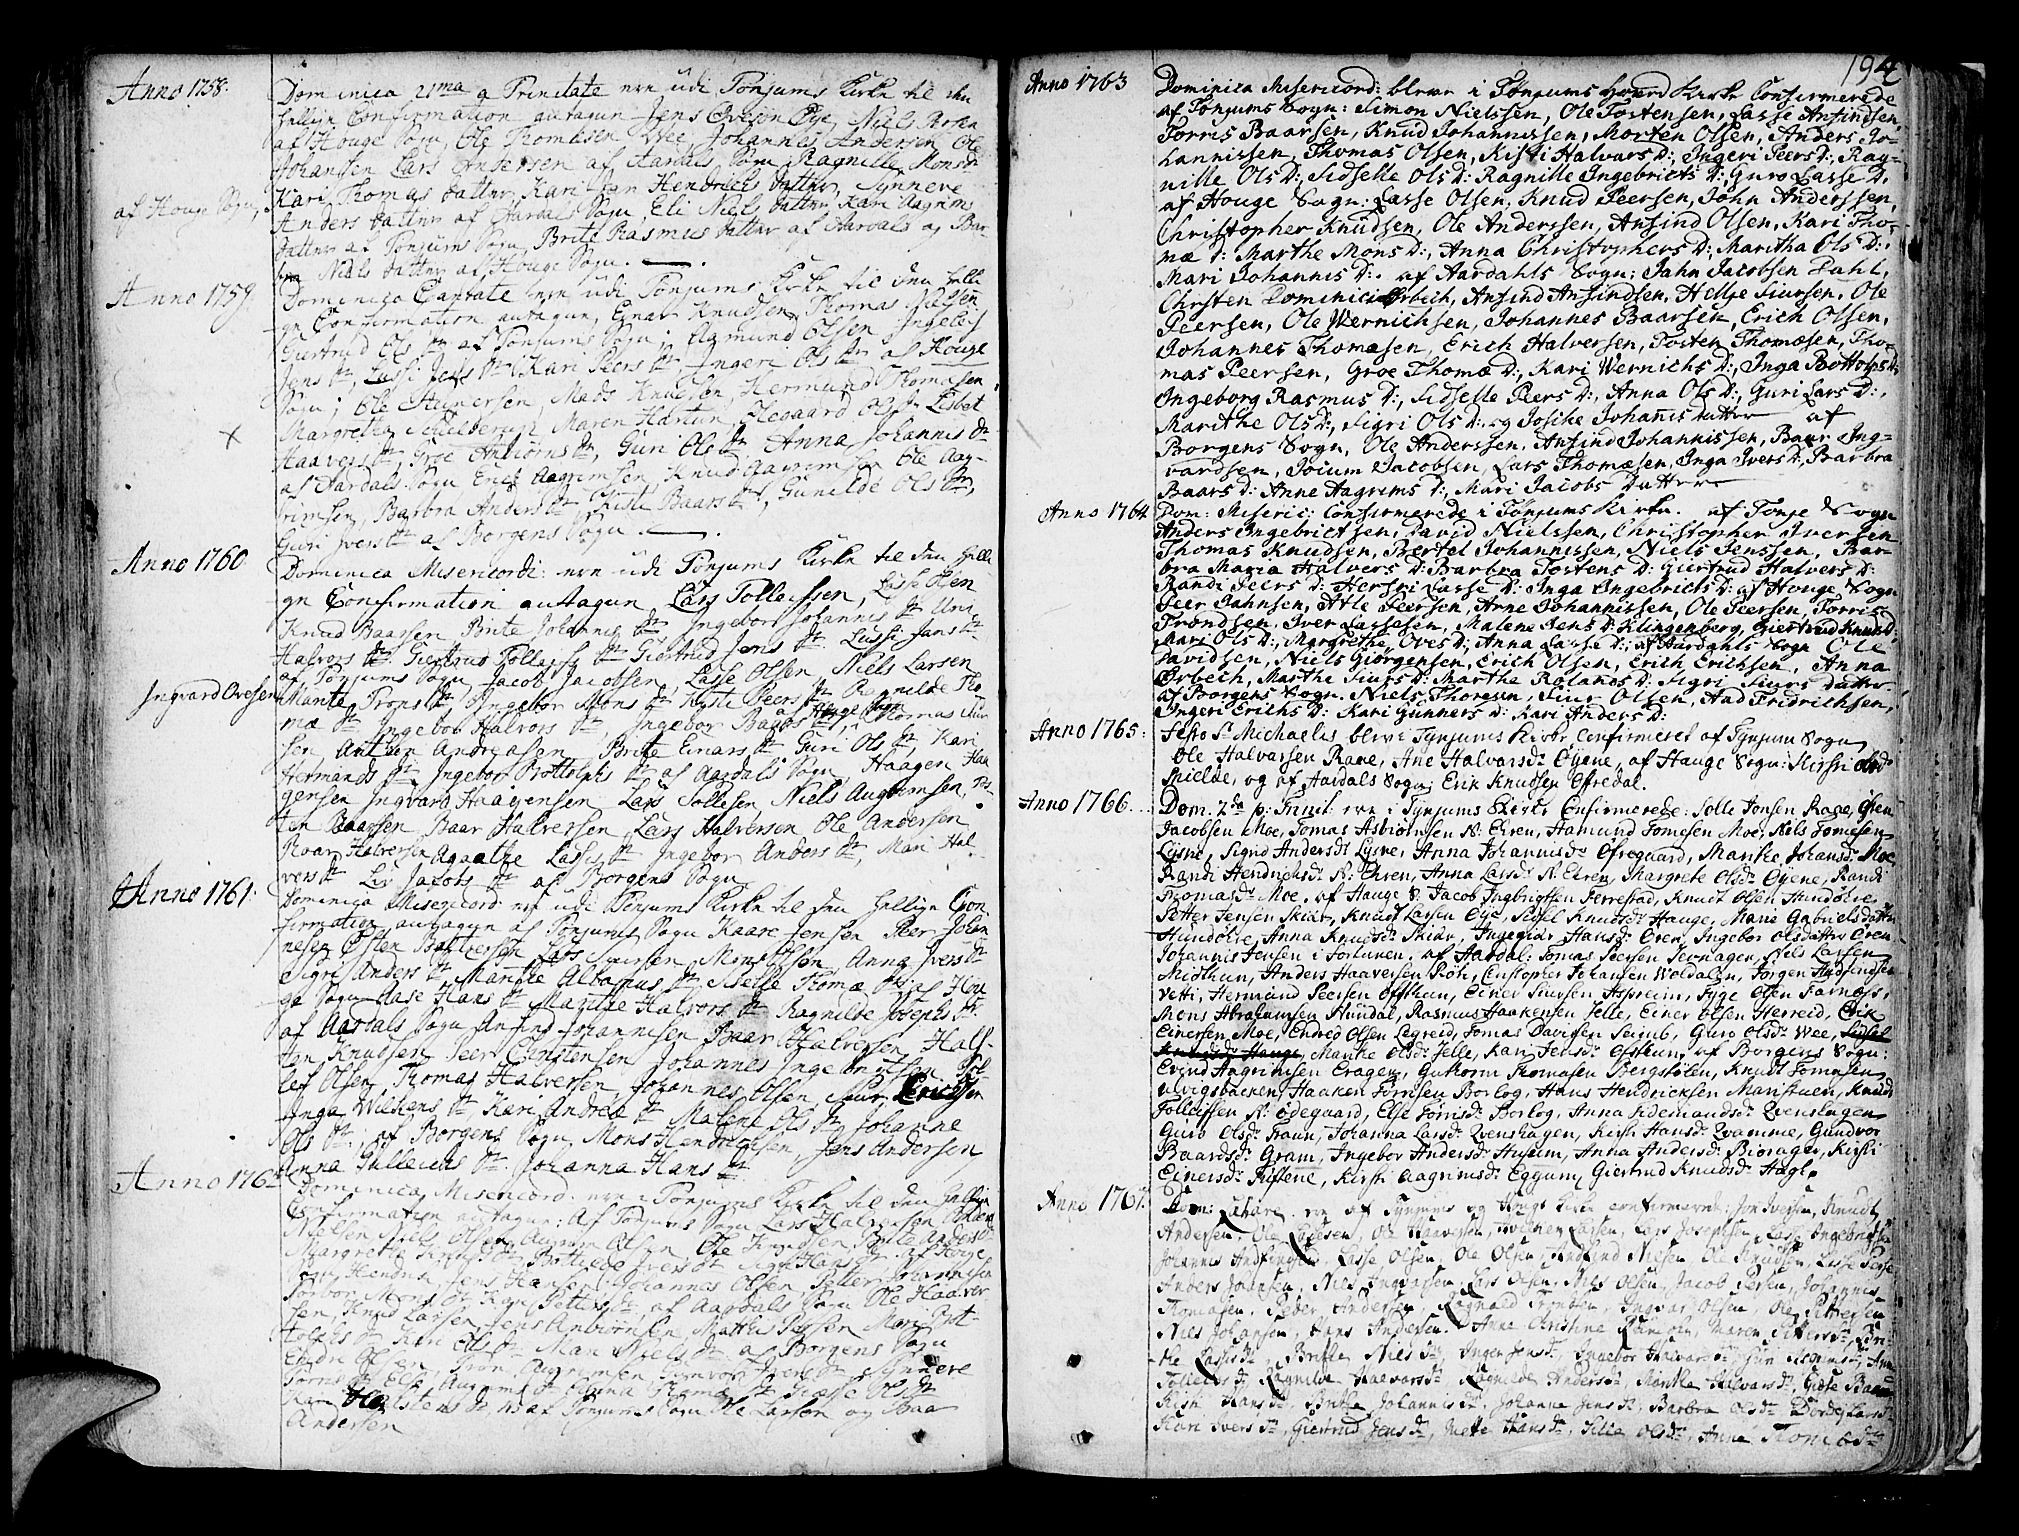 Anno 1758.
Dominica 21ma a Trinitate ere udi Tønjums Kirke til den
hellige Confirmation antagen Jens Ovesøn Øye, Niels
af Houge Sogn, Ole Thomæsen Johannes Andersen Ole
Johansen Lars Andersen af Aardals Sogn Ragnille Mons
Kari Thomas datter, Kari Jan Hendrichs datter, Synneve
af Houge Sogn,
Anders datter af Aardals Sogn, Eli Niels datter Kari Aagrims
datter af Tønjums Sogn, Brite Rasmus datter af Aardals Bar
bra Niels datter af Houge Sogn.
Anno 1759
Dominica Cantate ere udi Tønjums Kirke til den helli
gn Confirmation antagen, Einar Knudsen, Thomas
Giertrud Ols dtr af Tønjums Sogn; Aamund Olsen Ingeleif
Jens dtr, Lussi Jens dtr Kari Peers dtr, Ingeri Ols dtr af Houge
Sogn; Ole Mads Knudsen, Hermund Thomasen,
Margretha Maren Hartun, Ols dtr Lisbet
Haavers dtr, Groe Anbiørns dtr, Guri Ols dtr, Anna Johannis dtr
af Aardals Sogn Erich Aagrimsen, Knud Aagrimsen Ole Aag-
rimsen, Barbra Anders dtr Kristi Baars dtr, Gunilde Ols dtr,
Guri Ivers dtr af Borgens Sogn.
Anno 1760
Dominica Misericordi: ere udi Tønjums Kirke til den helli
gn Confirmation antagen Lars Tolleifsen,
Knud Baarsen Brite Johannis dtr Ingebor Johannis dtr
Halvors dtr Giertrud Tolleifs dtr Giertrud Jens dtr Lussi Jans dtr
af Tønjums Sogn Jacob Jacobsen, Lasse Olsen Niels Larsen
Ingvard Ovesen
Marite Trons dtr, Ingebor Mons dtr Kyste Peers dtr Ragnilde Tho
mæ dtr Ingebor Halvors dtr, Ingebor Baars dtr Houge Sogn Thomas
sen, Anthon Andreasen Brite Einars dtr Guri Ols dtr, Kari
Hermands dtr Ingebor Bottolphs dtr af Aardals Sogn, Haagen Haa
gensen Ingvard Haagensen Lars Tollesen, Niels Augrimsen, Tos
ten Baarsen Baar Halversen Lars Halversen Ole Andersen
Roar Halversen Agathe Lasses dtr Ingebor Anders dtr, Mari Hal
vers dtr Liv Jacobs dtr af Borgens Sogn
Anno 1761.
Dominica Misericord: ere udi Tønjums Kirke til den hellige Con
firmation antagen af Tønjums Sogn Kaare Jensen Peer Johan
nesen Østen Halversen Lars Mons Olsen Anna Ivers dtr
Sigri Anders dtr Marithe Albanus dtr Sidselle Thomæ dtr af Hou
ge Sogn Aase Hans dtr Marithe Halvors dtr Ragnilde Josephs dtr
af Aardals Sogn Anfind Johannisen Baar Halversen Half-
ten Knudsen Peer Christensen Johannes Ingebritsen
lef Olsen, Thomas Halversen, Johannes Olsen, Siur Erichsen
Inga Wilkens dtr, Kari Andreæ dtr Malene Ols dtr Johanne
Ols dtr, af Borgens Sogn, Mons Hendrichsen, Jens Andersen
Anna Gulleichs dtr Johanna Hans dtr
Anno 1762
Dominica Misericord: ere i Tønjums Kirke til den hellige
Confirmation antagen: Af Tønjums Sogn Lars Halversen
Nielsen, Niels Olsen, Augrim Olsen, Ole Knudsen, Brite Anders dtr
Margrethe Knuds dtr Bottilde Ivers dtr Sigri Hans dtr af Houge
Sogn, Hendrich Jens Hansen Johannes Olsen,
Torbor Mons dtr Kari Petters dtr, af Aardals Sogn Ole Haaver
sen, Knud Larsen, Jens Anbiørnsen, Matthis Mari Bot-
tolphs dtr Kari Ols dtr Mari Niels dtr af Borgens Sogn
Endre Olsen, Tron Augrimsen Ivers dtr Synneve
Torris dtr Else Augrims dtr Anna Thomas dtr Sidsele Ols dtr
Kari Halstens dtr af Tønjums Sogn Ole Larsen og Baar
Andersen
194
Anno 1763
Dominica Misericord: bleve i Tønjums Hoved Kirke Confirmerede
af Tønjums Sogn: Simon Nielssen, Ole Tostensen, Lasse Anfindsen,
Torris Baarsen, Knud Johannissen, Morten Olsen, Anders Jo-
hannissen, Thomas Olsen, Kisti Halvars D:, Ingeri Peers D:, Rag-
nille Ols D:, Sidselle Ols D: Ragnille Ingebricts D:, Guro Lasse D:
af Houge Sogn: Lasse Olsen, Knud Peersen, John Anderssen,
Christopher Knudsen, Ole Anderssen, Anfind Olsen, Kari Tho-
mæ D: Marthe Mons D:, Anna Christophers D:, Maritha Ols D:,
Mari Johannis D:. af Aardahls Sogn: Jahn Jacobsen Dahl,
Christen Dominici Ørbech, Anfind Anfindsen, Helje Siursen, Ole
Peersen, Ole Wernichsen, Johannes Baarsen, Erich Olsen,
Johannes Thomæsen, Erich Halversen, Tosten Thomæsen, Tho-
mas Peersen, Groe Thomæ D:, Kari Wernichs D:, Inga Bottolps D:
Ingeborg Rasmus D:, Sidselle Peers D:, Anna Ols D:, Guri Lars D:,
Marithe Ols D:, Sigri Ols D:, og Josike Johannis datter af
Borgens Sogn, Ole Anderssen, Anfind Johannissen, Baar Ing-
vardsen, Jocum Jacobsen, Lars Thomæsen, Inga Ivers D:, Barbra
Baars D: Anne Aagrims D:, Mari Jacobs Datter
Anno 1764
Dom: Miseric: Confirmerede i Tønjums Kirke. af Tønge Sogn
Anders Ingebrictsen, David Nielssen, Christopher Iversen
Thomas Knudsen, Bertel Johannissen, Niels Jenssen, Bar-
bra Maria Halvers D: Barbra Tostens D: Giertrud Halvers D:
Randi Peers D: Herbri Lasse D: Inga Ingebrichs D: af Houge Sogn
Peer Jahnsen, Atle Peersen, Arne Johannissen, Ole Peersen, Torris
Trondsen, Iver Lassesen, Malene Jens D: Klingenberg, Giertrud Knuds D:
Mari Ols D:, Margrethe Oves D:, Anna Lasse D:, af Aardahls Sogn Ole
Davidsen, Niels Giørgensen, Erich Olsen, Erich Erichsen, Anna
Ørbech, Marthe Siurs D: Marthe Rolands D: Sigri Siurs datter.
af Borgens Sogn. Niels Thoresen, Siur Olsen, Aad Fridrichsen,
Ingeri Erichs D: Kari Gunners D: Kari Anders D:
Anno 1765:
Festo St. Michaelis blev i Tynjums Kirke Confirmeret af Tynjum Sogn
Ole Halvarsen Rane, Ane Halvarsdr Øyene, af Hauge Sogn: Kirstri Olsdr
Skielde, og af Aardals Sogn: Erik Knudsen Ofredal.
Anno 1766.
Dom. 2da p: Trinit: ere i Tynjums Kirke Confirmerede: Tolle Jonsen Rage,
Jacobsen Moe, Tomas Asbiørnsen N. Eren, Hamund Tomesen Moe, Niels Tomesen
Lysne, Sigrid Andersdr Lysne, Anna Johannisdr Ofregaard, Marithe Johansdr Moe
Randi Hendrichsdr N. Ehren, Anna Larsdr N. Ehren, Margrete Olsdr Øyene, Randi
Thomasdr Moe. af Hauge S: Jacob Ingbrigtsen Ferrestad, Knudt Olsen Hundere,
Petter Jensen Skiær, Knudt Larsen Øye, Sidsel Knudsdr Hauge, Marie Gabrielsdatter
Hundere, Anna Knudsdr Skiær, Ingegier Hansdr Eren, Ingebor Olsdatter Eren
Johannis Jensen i Fortunen. af Aardal: Tomas Peersen Svenhagen, Niels Larsen
Midthun, Anders Haaversen Røti, Christopher Johansen Woldalen, Jørgen Andfindsen
Vetti, Hermund Peersen Ofsthun, Einer Siursen Aspreim, Tyge Olsen Farnæs,
Mons Abrahamsen Hundal, Rasmus Haakensen Jelle, Einer Olsen Herreid, Erik
Einersen Moe, Endred Olsen Legreid, Tomas Davidsen Seimb, Guro Olsdr Wee, Sidsel
Knudsdr Hauge, Marithe Olsdr Jelle, Kari Jensdr Ofsthun, af Borgens Sogn:
Evind Angrimsen Eragen, Guthorm Thomasen Bergstølen, Knudt Tomesen
ulvigsbacken, Haaken Jørnsen Borlog, Hans Hendricksen Maristuen, Knudt
Tolleifsen N: Ødegaard, Else Torrisdr Borlog, Anna Sidemandsdr Qvenshagen
Guro Olsdr Traun, Johanna Larsdr Qvenshagen, Kirsti Hansdr Qvamme, Gundvor
Baardsdr Gram, Ingebor Andersdr Husum, Anna Andersdr Biorager, Kirsti
Einersdr Riskene, Kirsti Aagrimsdr Eggum, Giertrud Knudsdr Hagl.
Anno 1767.
Dom: ere af Tynjums og Hougs Kirke confirmerede: Jon Iversen, Knudt
Andersen, Ole Larsen, Ole Haaversen, Larsen, Lars Josephsen, Lasse Ingebrigtsen
Johannis Andfindsen, Lasse Olsen, Ole Olsen, Andfind Nielsen Ole Knudsen,
Anders Johansen, Niels Ingvarsen, Lars Olsen, Niels Olsen, Jacob Persen, Johannis
Tomasen, Peder Andersen, Ragnald Tronsen, Ingvar Olsen, Ole Pettersen
Niels Johansen, Hans Andersen. Anne Christine Maren Pettersdr, Bri-
the Larsesdr, Brithe Nielsdr, Inger Jensdr, Ingebor Ingvarsdr, Guri
Tolleifsdr Ragnilde Halvarsdr, Ragnilde Andersdr, Marithe Halvarsdr,
Kisti Hansdr, Brithe Johannisdr, Johanne Jensdr, Barbra Olsdr Dorde Larsdr
Kari Iversdr, Giertrud Jensdr, Mette Hansdr, Sille Olsdr, Anne Thomesdr